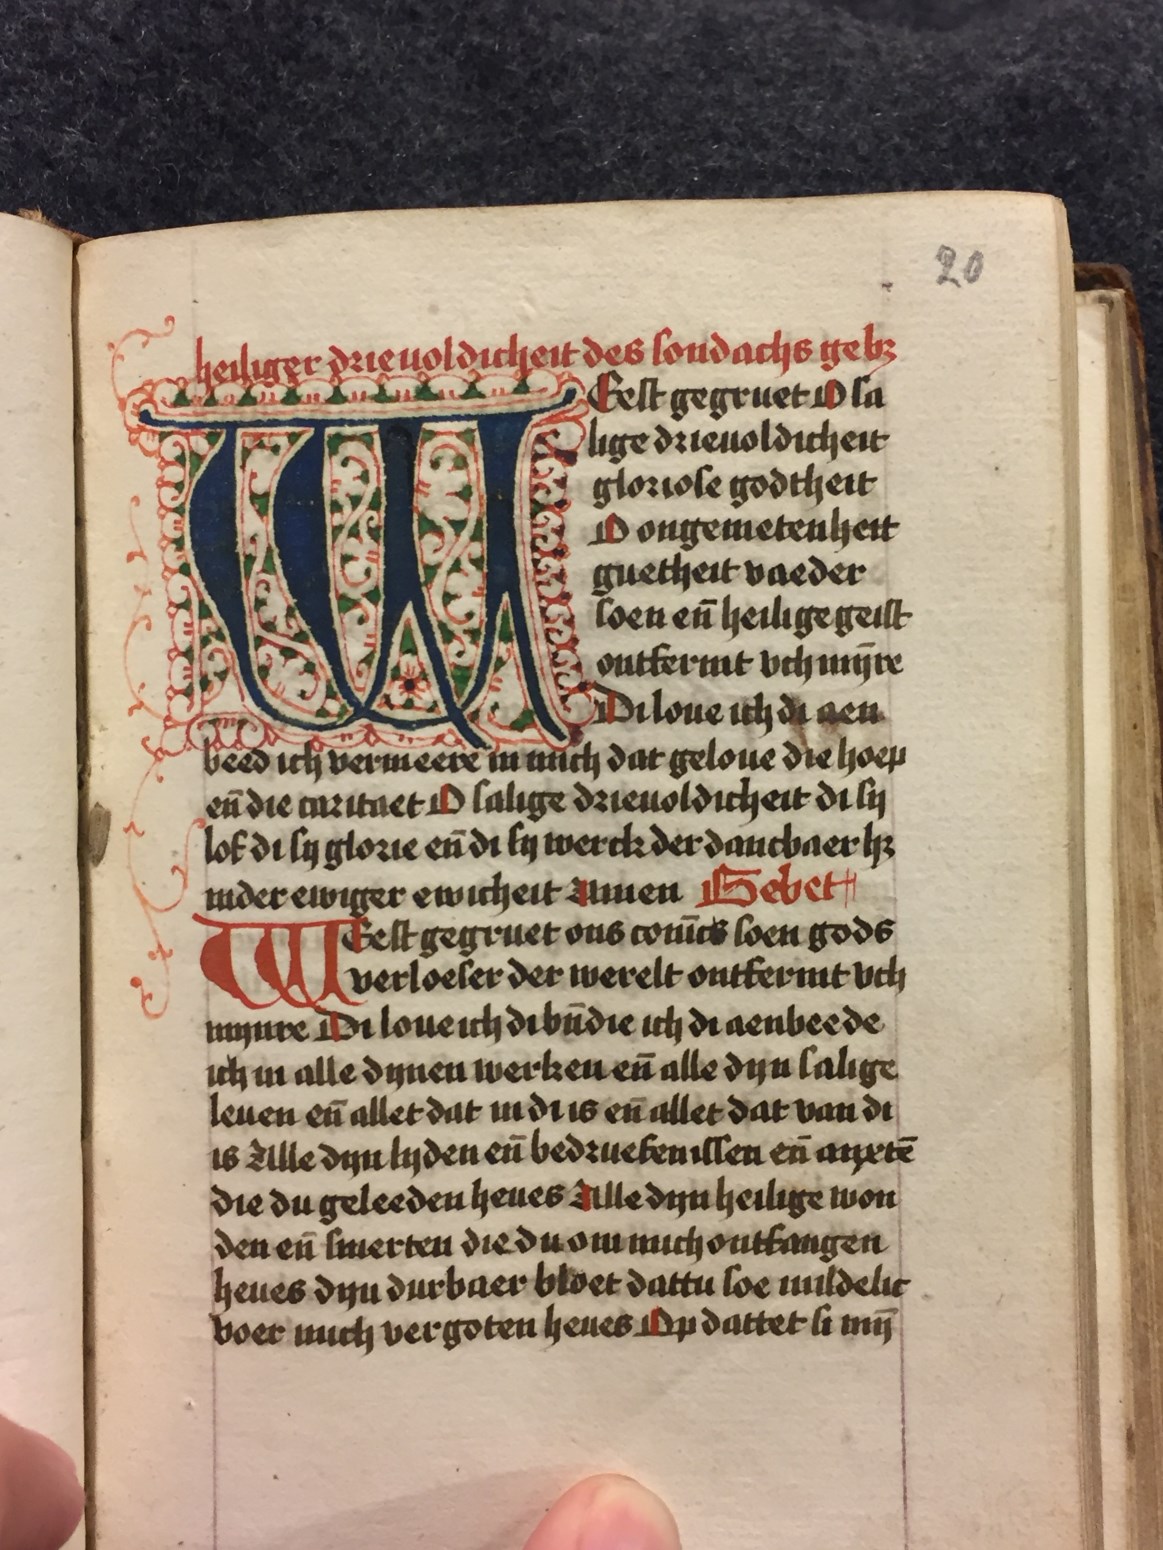 20
heiliger drieuoldicheit des sondachs gebꝫ
WEest gegruet O sa
lige drieuoldicheit
gloriose godtheit
O ongemetenheit
guetheit vaeder
soen en̄ heilige geist
ontfermt vch mȳre
Di loue ich di aen
beed ich vermeere in mich dat geloue die hoep
en̄ die caritaet O salige drieuoldicheit di sy
lof di sy glorie en̄ di sy werck der dancbaer hꝫ
inder ewiger ewicheit Amen Gebet
WEest gegruet ons soen gods
verloeser der werelt ontfermt vch
mynre Di loue ich di bn̄die ich di aenbeede
ich in alle dynen werken en̄ alle dyn salige
leuen en̄ allet dat in di is en̄ allet dat van di
is Alle dyn lyden en̄ bedruefenissen en̄ anxtē
die du geleeden heues Alle dyn heilige won
den en̄ smerten die du om mich ontfangen
heues dyn durbaer bloet dattu soe mildelic
voer mich vergoten heues Op dattet si mȳ